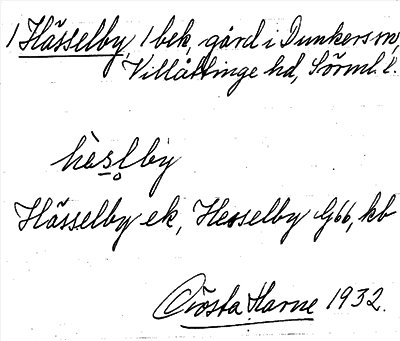 1 Hässelby, 1 bek, gård i Dunkers sn,
Villåttinge hd, Sörml. l.
hèslby
Hässelby ek, Hesselby 1766, kb
Gösta Harne 1932.